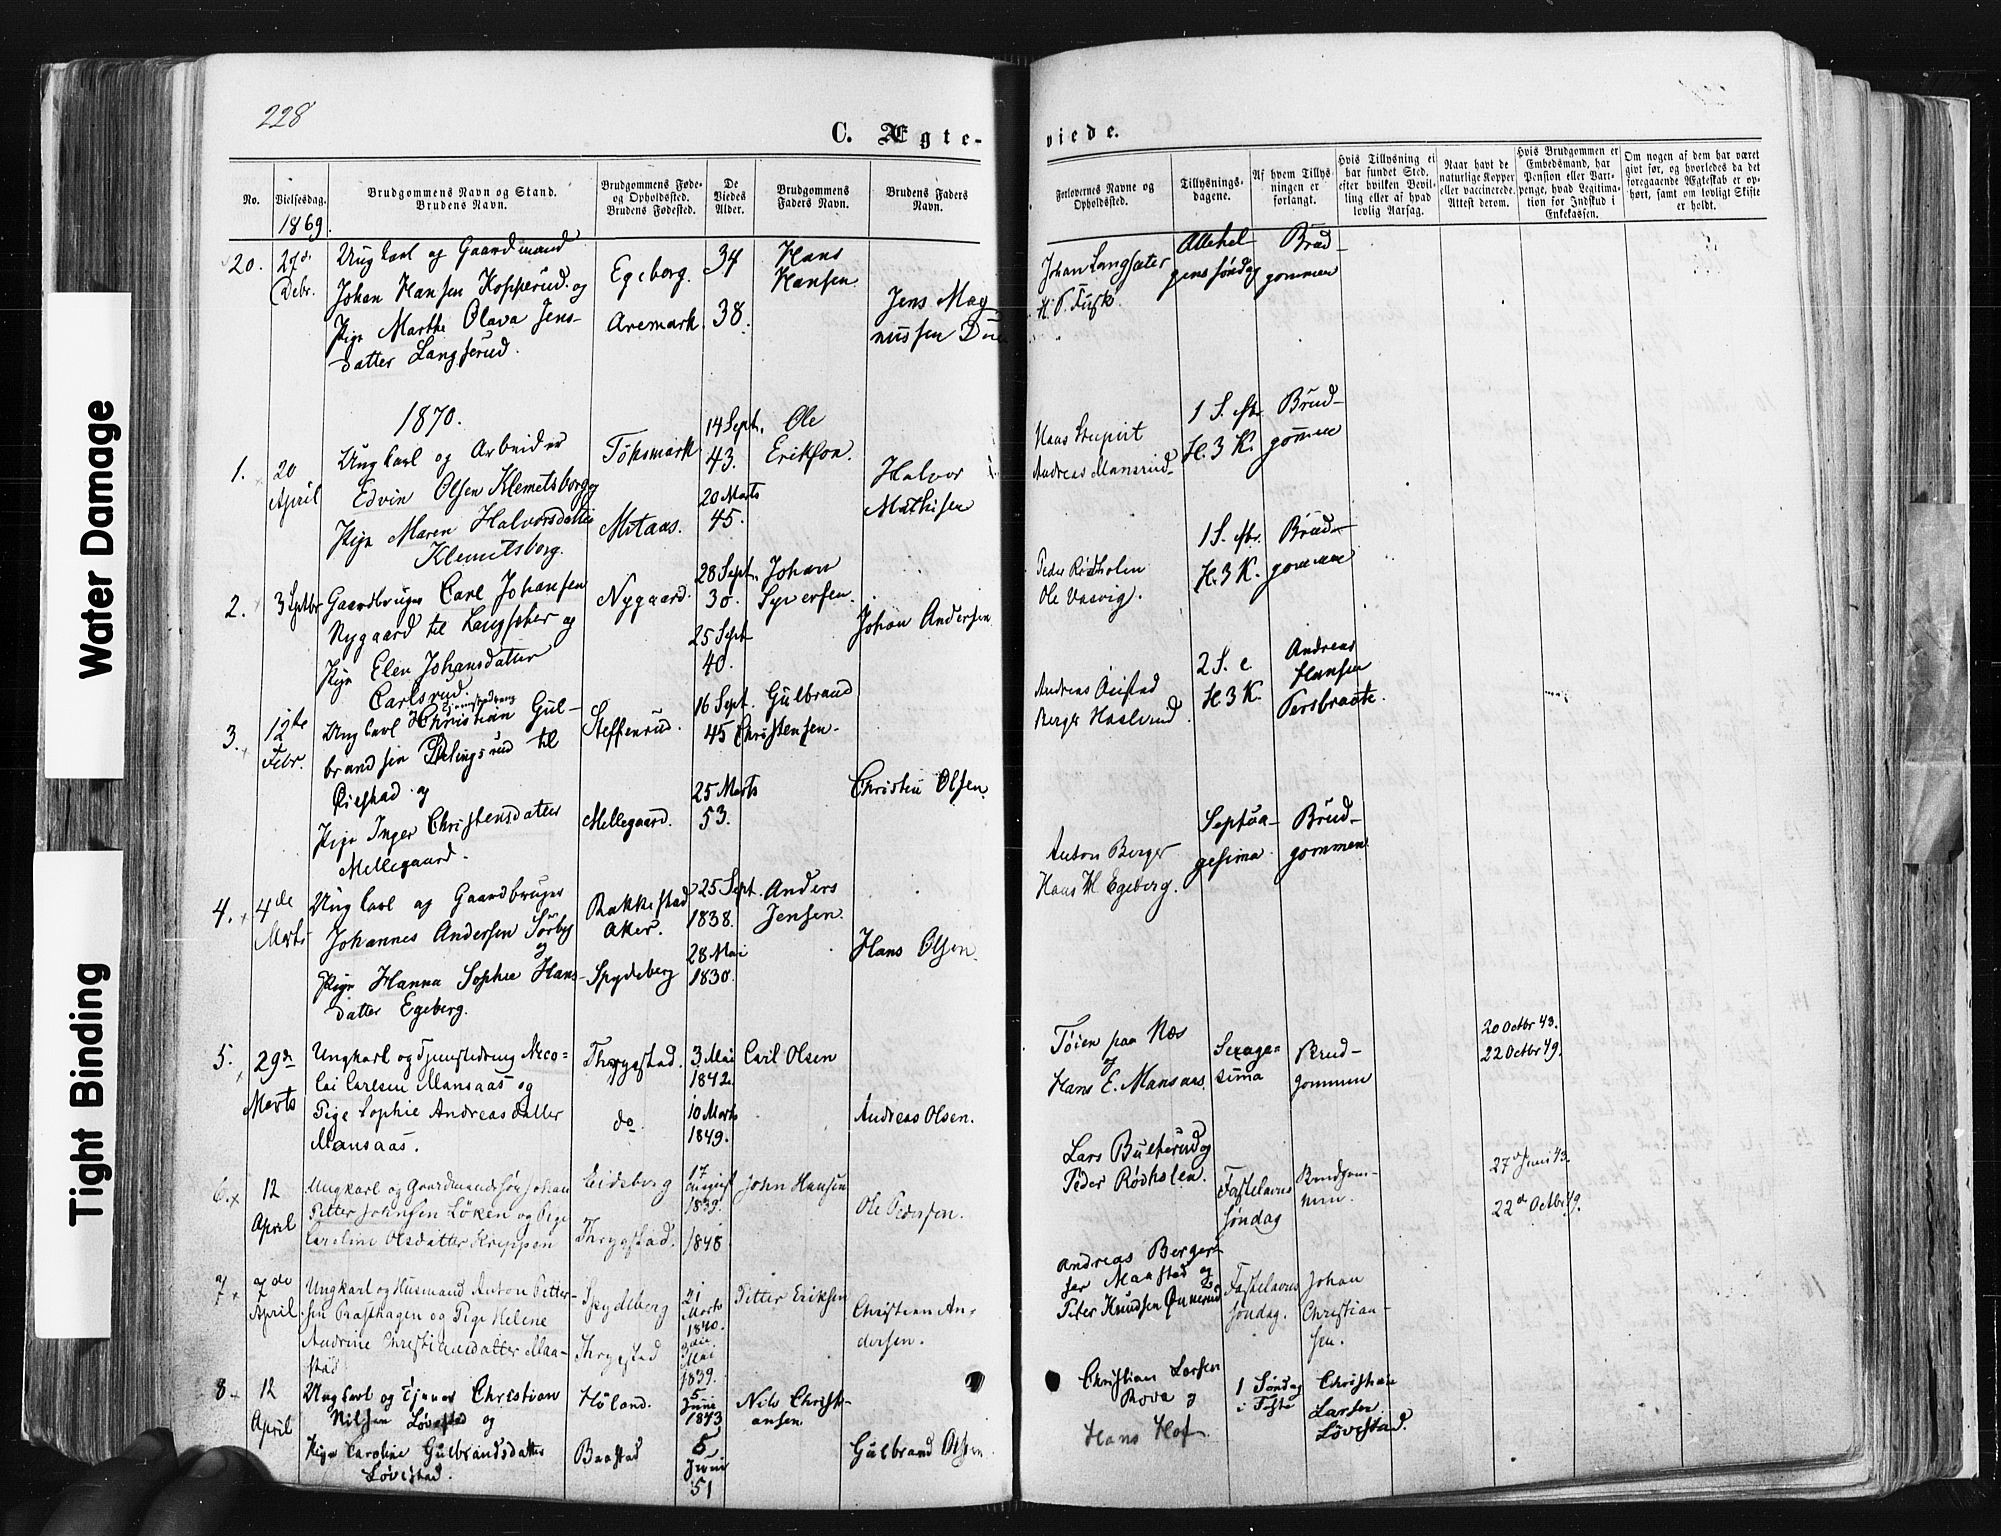 Water Damage
Tight Binding
228
C. Ægte-
No.
Vielsesdag.
Brudgommens Navn og Stand.
Brudens Navn.
Brudgommens Føde-
og Opholdssted.
Brudens Fødested.
De
Viedes
Alder.
Brudgommens
Faders Navn.
Brudens Faders
Navn.
1869.
20.
27de
Debr.
Ungkarl og Gaardmand
Johan Hansen Kopperud og
Pige Marthe Olava Jens-
datter Langserud.
Egeberg.
Aremark.
34
38.
Hans
Hansen
Jens Mag
nussen
1870.
1.
20
April
Ungkarl og Arbeider
Edvin Olsen Klemetsborg og
Pige Maren Halvorsdatter
Klemetsborg.
Tøksmark
Motaas.
14 Sept.
43.
20 Marts
45.
Ole
Erikson.
Halvor
Mathisen
2.
3 Septbr
Gaardbruger Carl Johansen
Nygaard til Langsæter og
Pige Elen Johansdatter
Carlsrud.
Nygaard.
28 Sept.
30.
25 Sept
40.
Johan
Syversen.
Johan Andersen
3.
12te
Febr.
Ungkarl Christian Gul-
brandsen til
Øiestad og
Pige Inger Christensdatter
Mellegaard.
Steffenrud.
Mellegaard.
16 Sept.
45
25 Marts
53.
Gulbrand
Christensen.
Christen Olsen.
4.
4de
Marts
Ungkarl og Gaardbruger
Johannes Andersen Sørby
og
Pige Hanna Sophie Hans-
datter Egeberg.
Rakkestad
Aker.
Spydeberg
25 Sept.
1838.
28 Mai
1830.
Anders
Jensen.
Hans Olsen.
5.
29de
Marts
Ungkarl og Tjenestedreng Nico=
lai Carlsen Mansaas og
Pige Sophie Andreasdatter
Mansaas.
Thrygstad.
do
3 Mai
1842.
10 Marts
1849.
Carl Olsen
Andreas Olsen.
6.
12
April
Ungkarl og Gaardmandssøn Johan
Petter Johnsen Løken og Pige
Caroline Olsdatter Kreppen
Eidsberg
Thrygstad.
17
August
1839.
1848
John Hansen
Ole Pedersen.
7
7de
April
Ungkarl og Husmand Anton Petter-
sen Præsthagen og Pige Helene
Andrine Christiansdatter Maa-
stad
Spydeberg
Thrygstad
21
Marts
1840.
Mai
1839.
Petter Eriksen
Christian An-
dersen.
8
12
April
Ungkarl og Tjener Christian
Nilsen Løvestad og
Pige Caroline Gulbrandsdatter
Løvestad.
Høland.
Baastad
5
Juni
1843
5
Juni
51
Nils Christi-
ansen
Gulbrand Olsen
viede.
Forlovernes Navne og
Opholdssted.
Tillysnings-
dagene.
Af hvem Tillys-
ningen er
forlangt.
Hvis Tillysning ei
har fundet Sted,
efter hvilken Bevil-
ling eller af hvad
lovlig Aarsag.
Naar havt de
naturlige Kopper
eller vaccinerede.
Attest derom.
Hvis Brudgommen er
Embedsmand, har
Pension eller Vart-
penge, hvad Legitima-
tion for Indskud i
Enkekassen.
Om nogen af dem har været
gift før, og hvorledes da det
foregaaende Ægteskab er op-
hørt, samt om lovligt Skifte
er holdt.
Johan Langsæter
H. P. Fuske
Allehel-
gens søndag
Brud-
gommen
Hans
Andreas Mansrud
1 S.
H. 3 K.
Brud-
gommen
Peder Rødholen
Ole Vasvig.
1 S.
H. 3 K.
Brud-
gommen
Andreas Øiestad
Berger Haslerud
2 S. e
H. 3 K.
Andreas
Hansen
Persbraate.
Anton Berger
Hans M Egeberg.
Septua-
gesima
Brud-
gommen
Tøien paa Næs
og
Hans E. Mansaas
Sexage=
sima
Brud-
gommen
20 Octbr 43.
22 Octbr 49.
Lars Bulterud og
Peder Rødholen.
Fastelavns
søndag
Brudgom-
men.
27de Juni 43.
22de Octbr 49.
Andreas Berger-
sen Maastad og
Peter Knudsen Ønnerud
Fastelavns
søndag.
Johan
Christian-
sen.
Christian Larsen
Rova og
Hans Hof
1 Søndag
i Faste
Christian
Larsen
Løvestad.